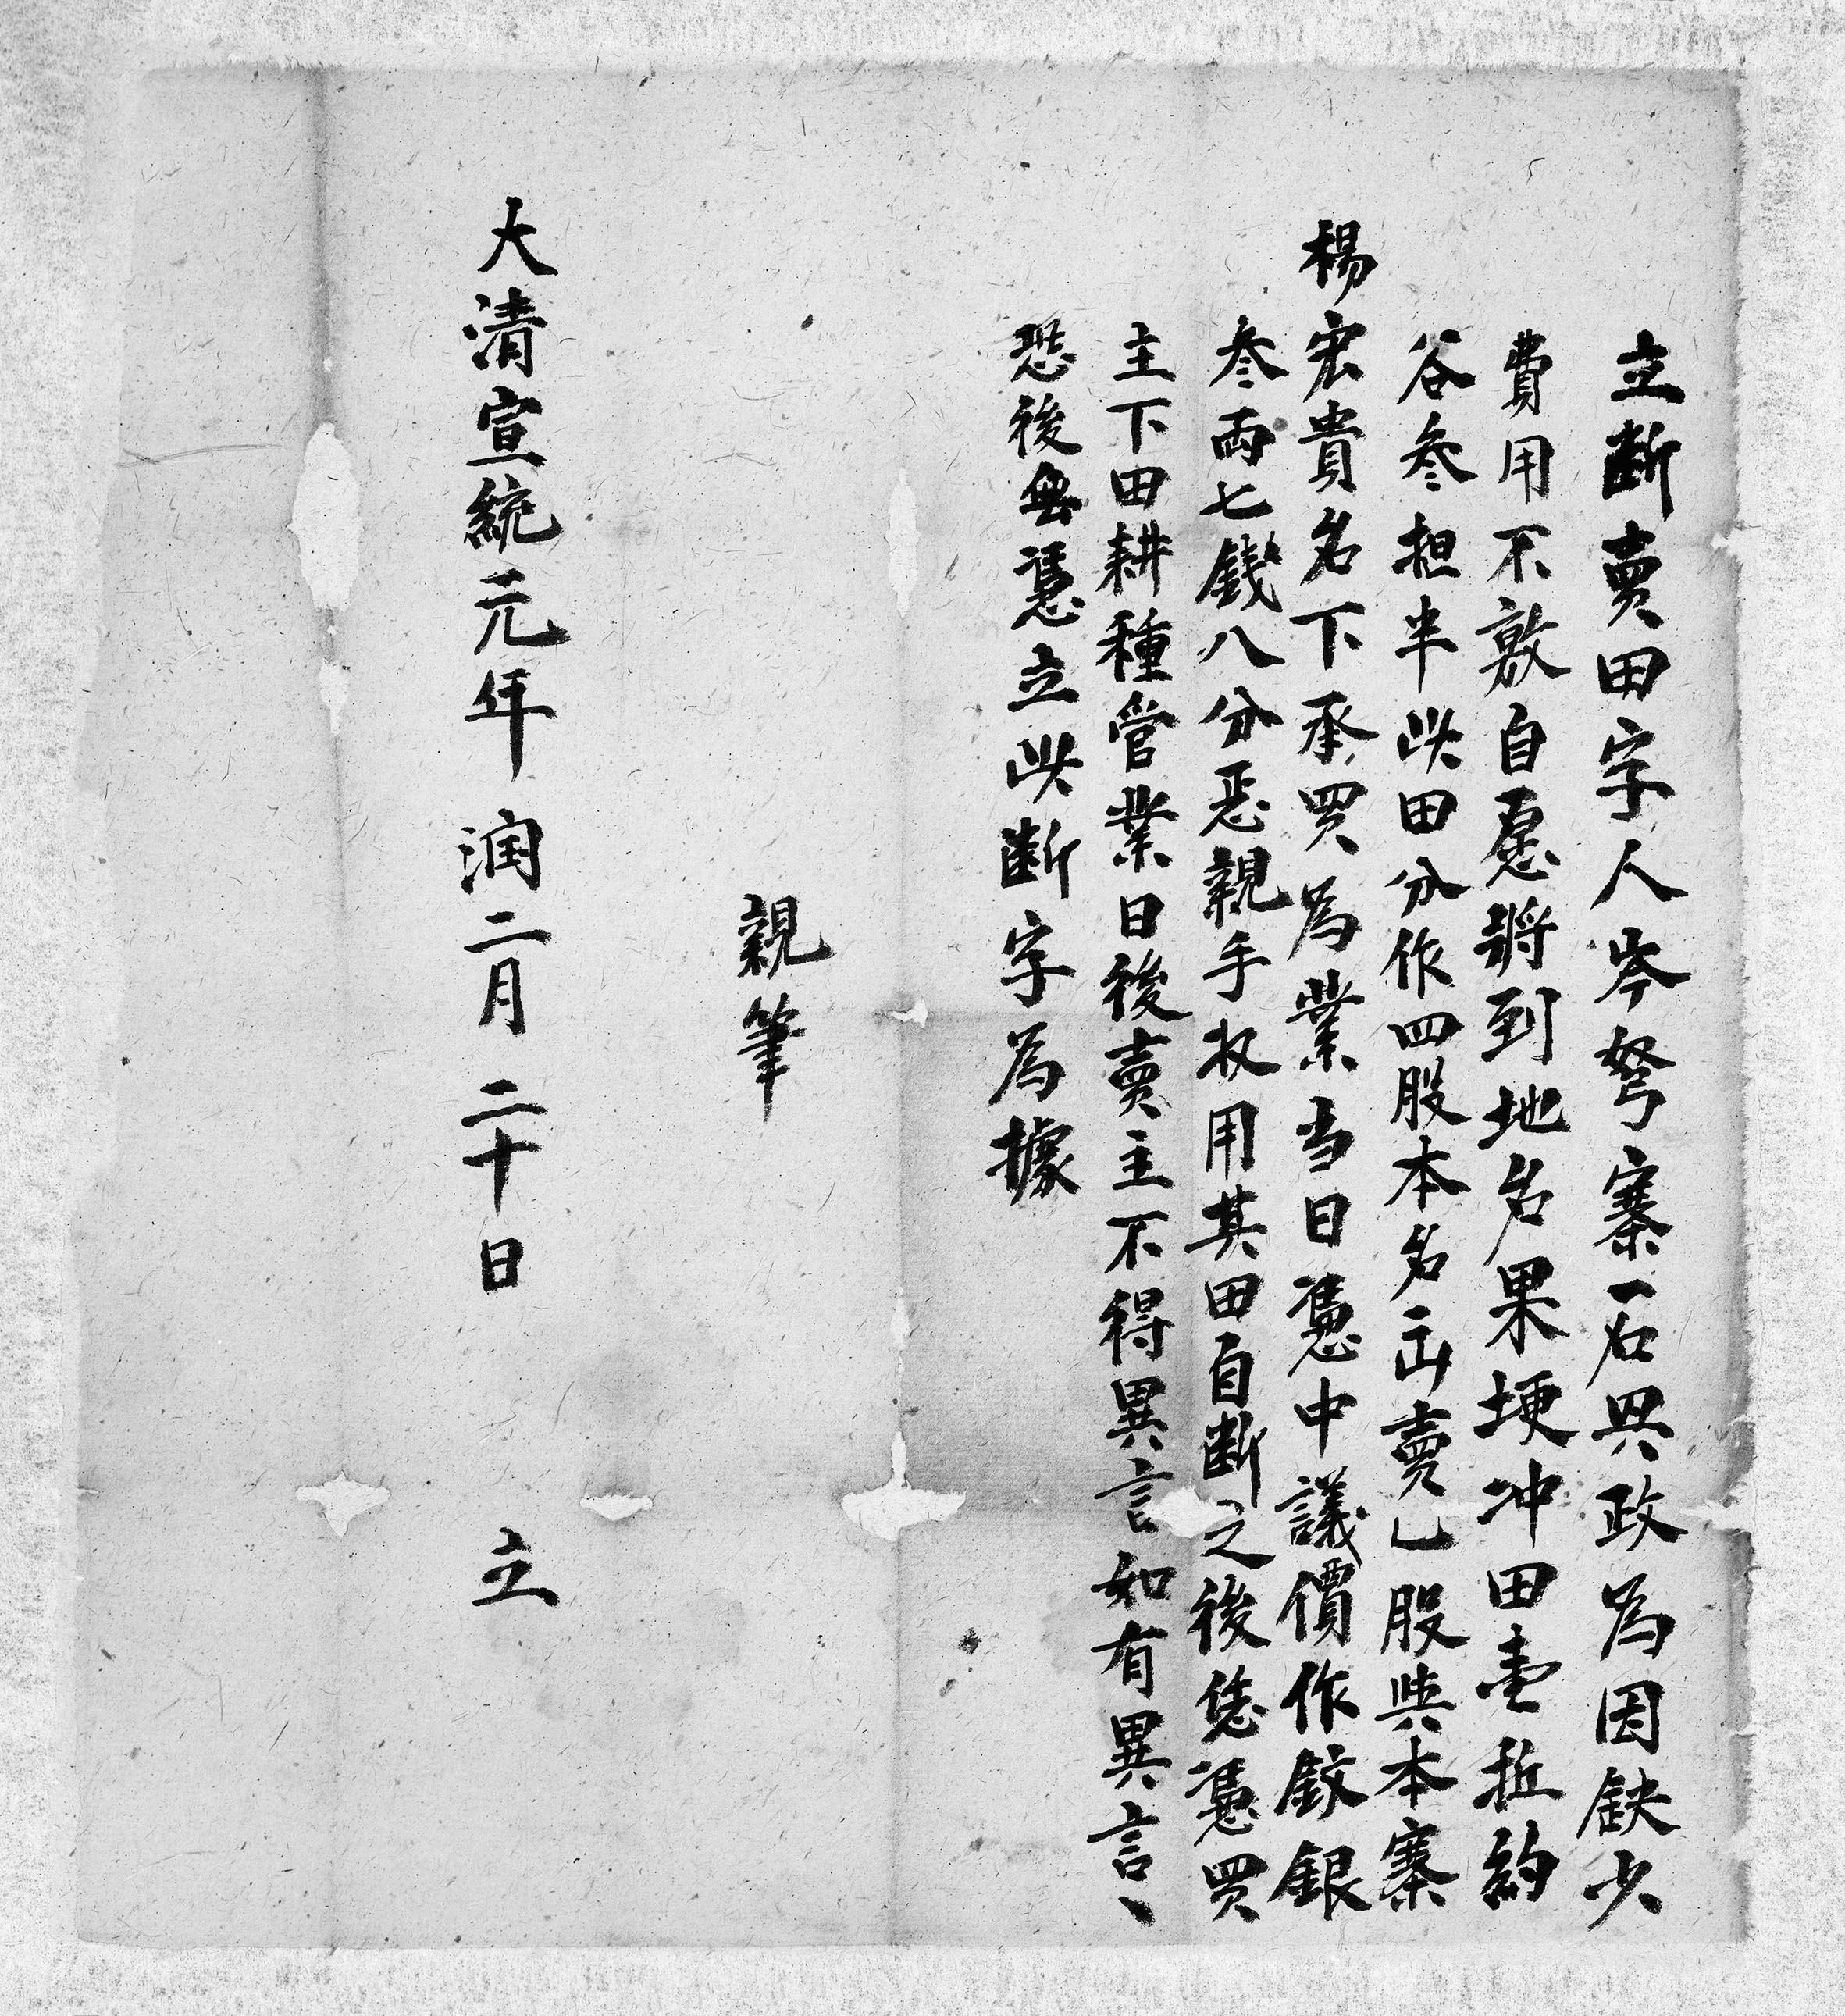 立断賣田字人岑弩寨石興政為因缺少
費用不敷自愿將到地名果埂冲田壹坵約
谷叁担半此田分作四股本名出賣乙股與本寨
楊宏貴名下承買為業当日憑中議價作銀
叁両七錢八分恶親手收用其田自断之後恁憑買
主下田耕種管業日後賣主不得異言如有異言、
恐後無憑立此断字為據
親筆
大清宣統元年 润二月 二十日 立